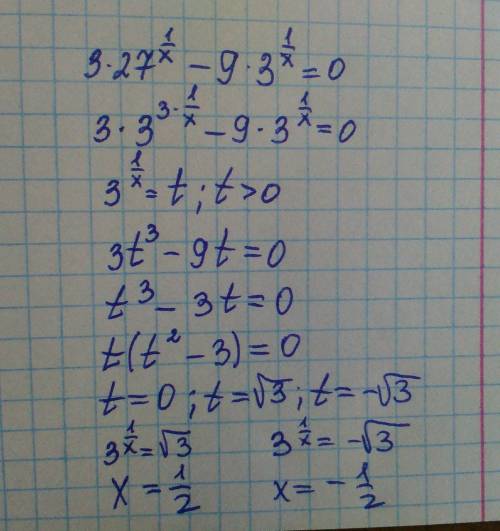 3·27^(1/x) − 9·3^(1/x) = 0
3·3^(3·1/x) − 9·3^(1/x) = 0
3^(1/x) = t ; t > 0
3t³ − 9t = 0
t³ − 3t = 0
t(t² − 3) = 0
t = 0 ; t = √3 ; t = −√3
3^(1/x) = √3   3^(1/x) = −√3
x = 1/2   x = −1/2